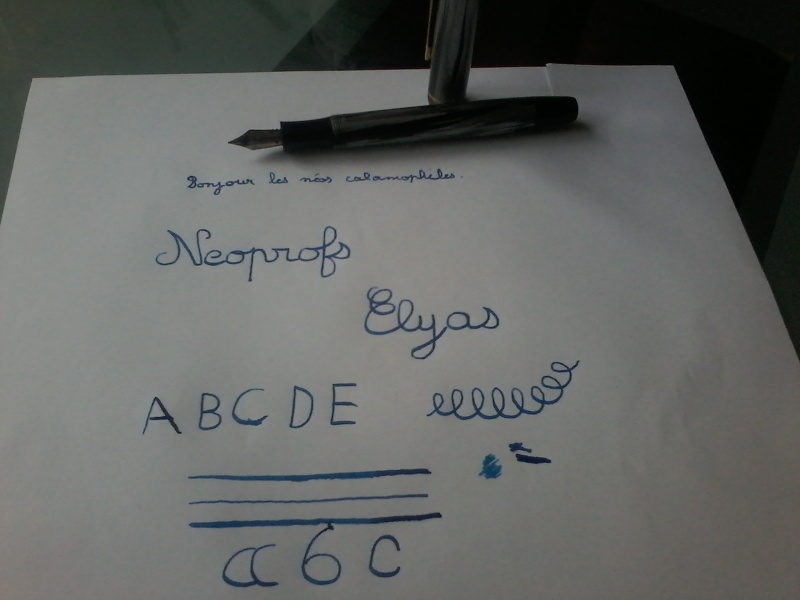 Bonjour les néos calamophiles.
Neoprofs
Elyas
A B C D E
a b c